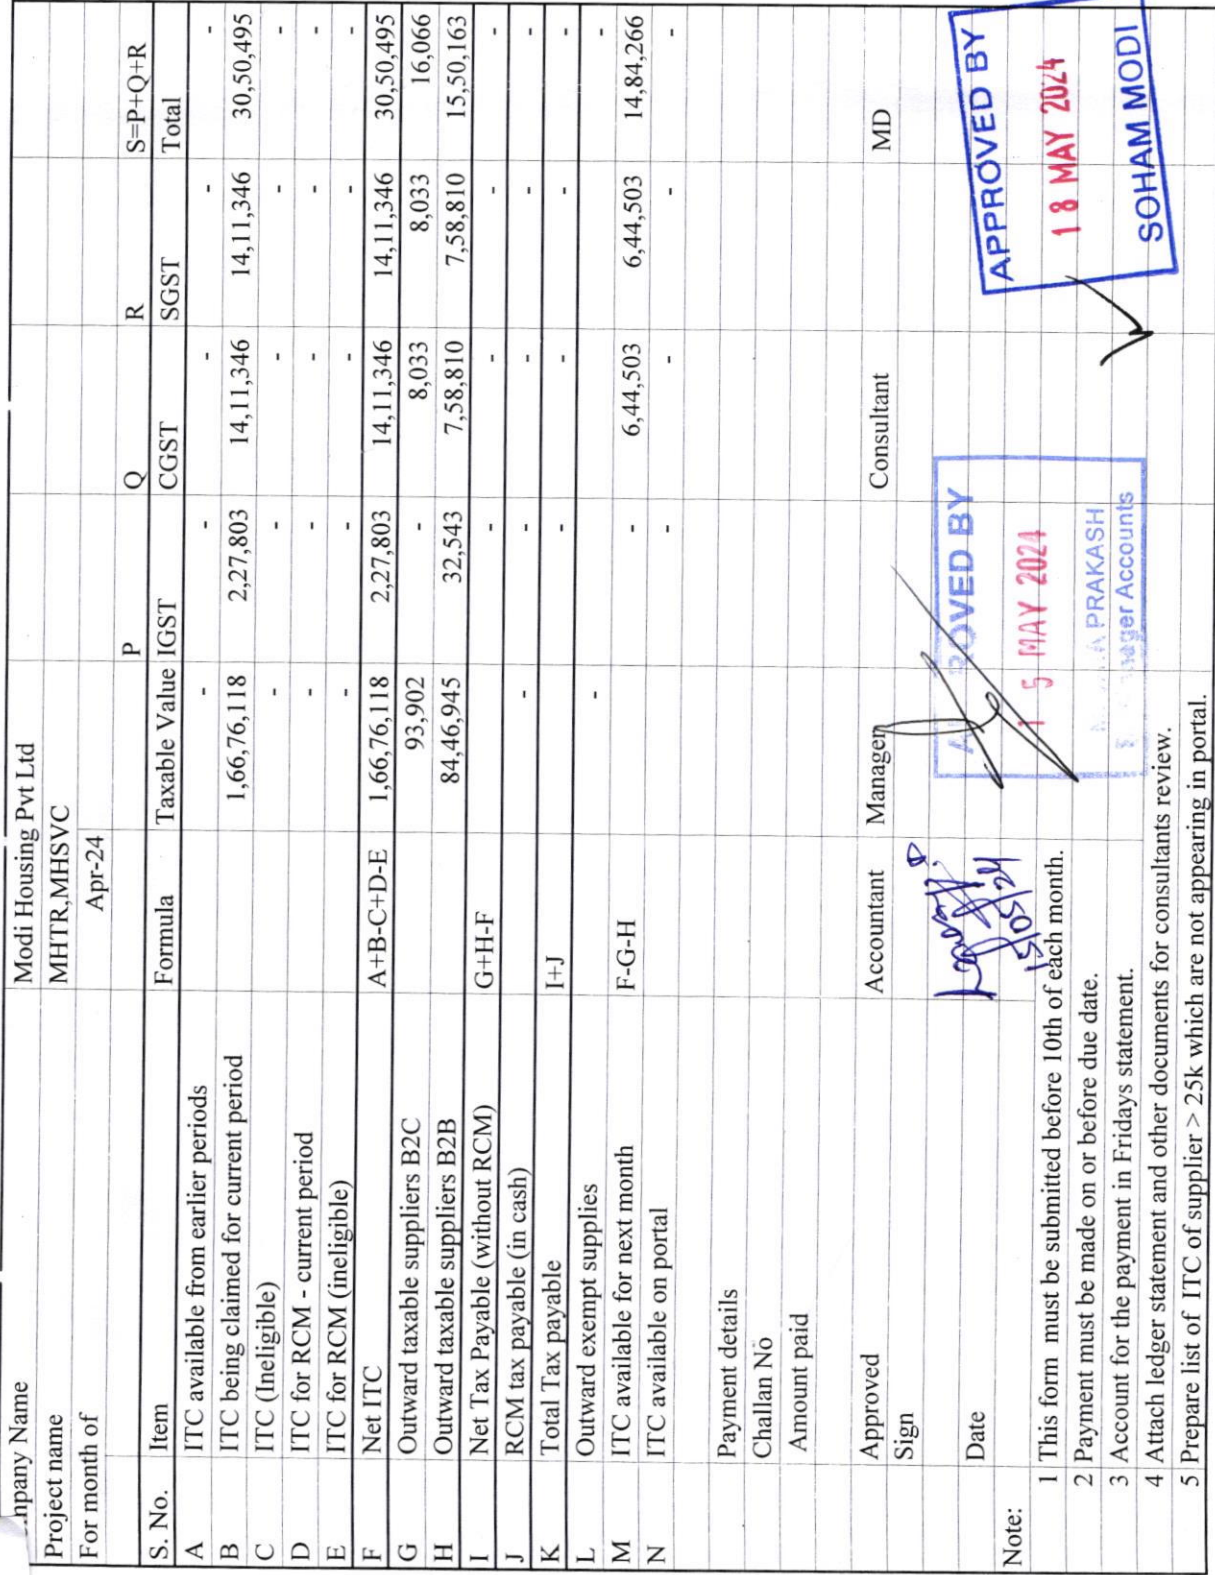 mpany Name Modi Housing Pvt Ltd
Project name MHTR,MHSVC
For month of Apr-24
P Q R S=P+Q+R
S. No. Item Formula Taxable Value IGST CGST SGST Total
A ITC available from earlier periods - - - - -
B ITC being claimed for current period 1,66,76,118 2,27,803 14,11,346 14,11,346 30,50,495
C ITC (Ineligible) - - - - -
D ITC for RCM - current period - - - - -
E ITC for RCM (ineligible) - - - - -
F Net ITC A+B-C+D-E 1,66,76,118 2,27,803 14,11,346 14,11,346 30,50,495
G Outward taxable suppliers B2C 93,902 - 8,033 8,033 16,066
H Outward taxable suppliers B2B 84,46,945 32,543 7,58,810 7,58,810 15,50,163
I Net Tax Payable (without RCM) G+H-F - - - -
J RCM tax payable (in cash) - - - - -
K Total Tax payable I+J - - - -
L Outward exempt supplies - -
M ITC available for next month F-G-H - 6,44,503 6,44,503 14,84,266
N ITC available on portal - - - -
Payment details
Challan No
Amount paid
Approved Accountant Manager Consultant MD
Sign
Date
15/05/24
APPROVED BY
15 MAY 2024
PRAKASH
Accounts
APPROVED BY
18 MAY 2024
SOHAM MODI
Note:
1 This form must be submitted before 10th of each month.
2 Payment must be made on or before due date.
3 Account for the payment in Fridays statement.
4 Attach ledger statement and other documents for consultants review.
5 Prepare list of ITC of supplier > 25k which are not appearing in portal.